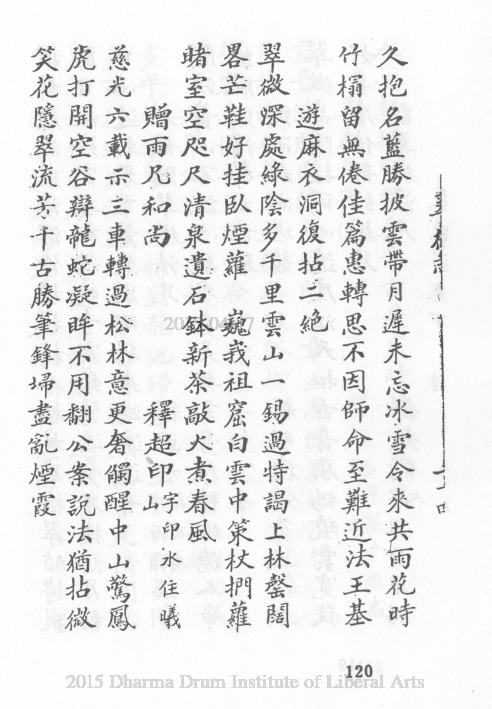 久抱名藍勝披雲帶月遲未忘冰雪令來共雨花時
竹榻留無倦佳篇惠轉思不因師命至難近法王基
遊麻衣洞復拈二絶
翠微深處綠陰多千里雲山一錫過特謁上林罄闊
畧芒鞋好挂臥煙蘿 巍峩祖窟白雲中策杖捫蘿
睹室空咫尺清泉遺石鉢新茶敲火煮春風
贈雨凡和尚 釋超印 字印水住曦山
慈光六載示三車轉過松林意更奢觸醒中山驚鳳
虎打開空谷辯龍蛇凝眸不用翻公案説法猶拈微
笑花隱翠流芳千古勝筆鋒埽盡亂煙霞
120
2015 Dharma Drum Institute of Liberal Arts